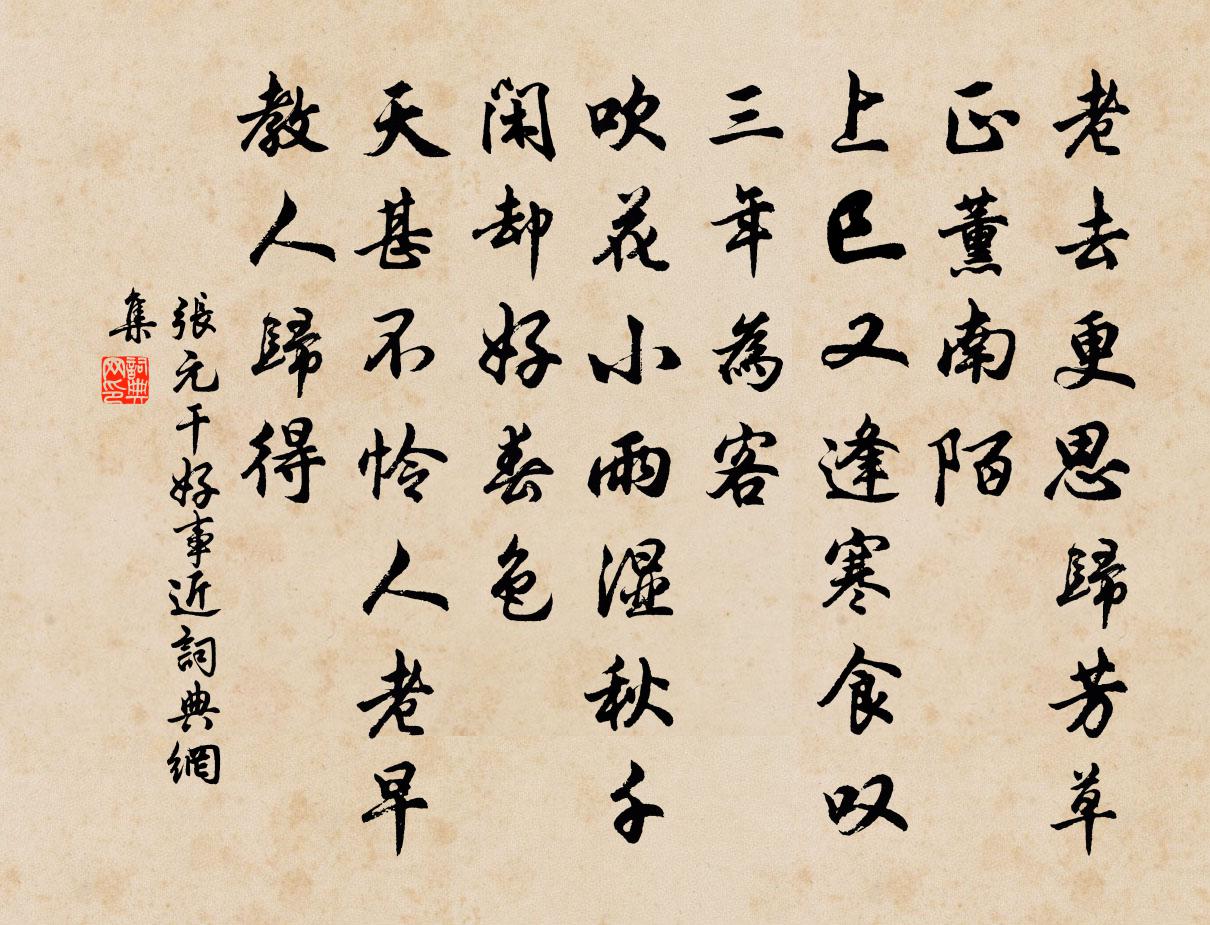 老去更思歸芳草
正薰南陌
上巳又逢寒食叹
三年為客
吹花小雨湿秋千
闲却好春色
天甚不怜人老早
教人歸得
張元干好事近詞典網
集
詞典网印